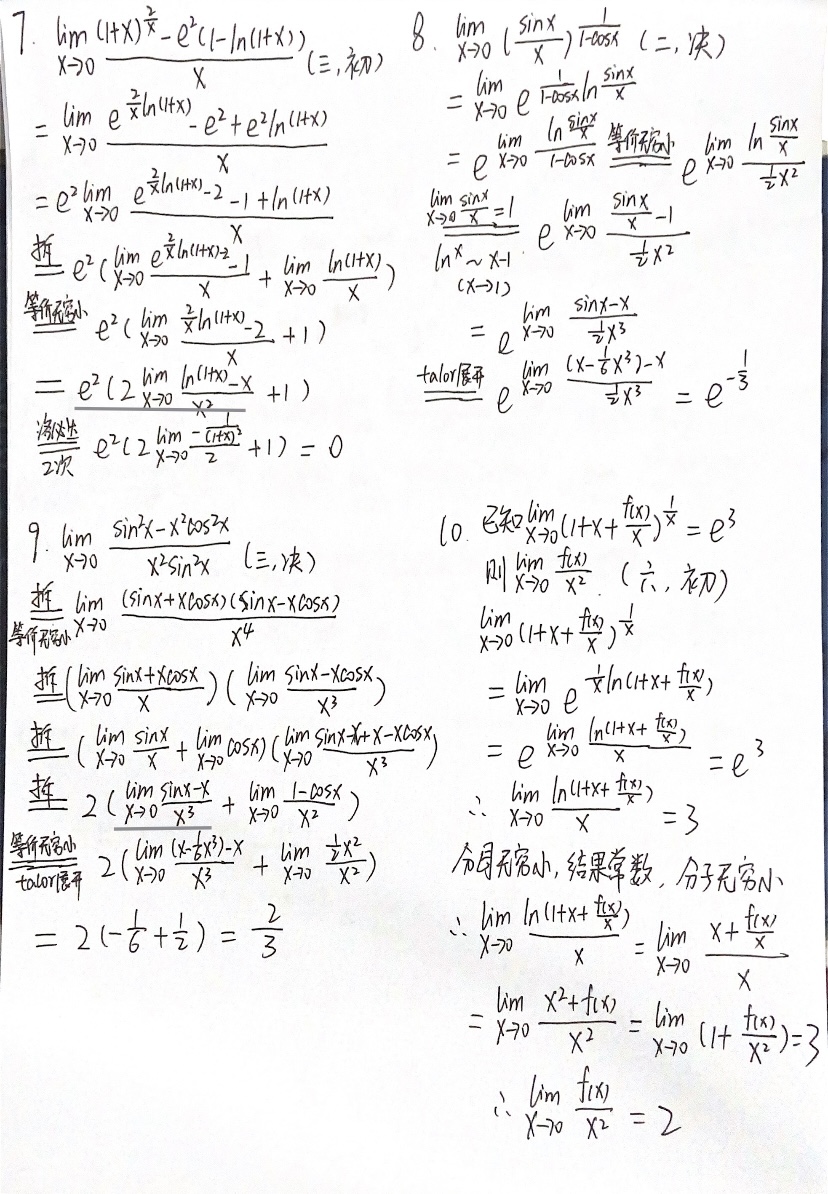 7. lim_{x→0} ((1+x)^{2/x} - e²(1-ln(1+x)))/x (三,初)
= lim_{x→0} (e^{2/x ln(1+x)} - e² + e²ln(1+x))/x
= e² lim_{x→0} (e^{2/x ln(1+x) - 2} - 1 + ln(1+x))/x
拆 = e²(lim_{x→0} (e^{2/x ln(1+x) - 2} - 1)/x + lim_{x→0} ln(1+x)/x)
等价无穷小 = e²(lim_{x→0} (2/x ln(1+x) - 2)/x + 1)
= e²(2 lim_{x→0} (ln(1+x) - x)/x² + 1)
洛必达2次 = e²(2 lim_{x→0} (-1/(1+x)²)/2 + 1) = 0
8. lim_{x→0} (sinx/x)^{1/(1-cosx)} (二,决)
= lim_{x→0} e^{1/(1-cosx) ln sinx/x}
= e^{lim_{x→0} (ln sinx/x)/(1-cosx)} 等价无穷小 = e^{lim_{x→0} (ln sinx/x)/(½x²)}
lim_{x→0} sinx/x = 1 = e^{lim_{x→0} (sinx/x - 1)/(½x²)}
ln^x ~ x-1
(x→1)
= e^{lim_{x→0} (sinx-x)/(½x³)}
talor展开 = e^{lim_{x→0} ((x-⅙x³)-x)/(½x³)} = e^{-1/3}
9. lim_{x→0} (sin²x - x²cos²x)/(x²sin²x) (三,决)
拆 等价无穷小 = lim_{x→0} (sinx+xcosx)(sinx-xcosx)/x⁴
拆 = (lim_{x→0} (sinx+xcosx)/x)(lim_{x→0} (sinx-xcosx)/x³)
拆 = (lim_{x→0} sinx/x + lim_{x→0} cosx)(lim_{x→0} (sinx-x+x-xcosx)/x³)
拆 = 2(lim_{x→0} (sinx-x)/x³ + lim_{x→0} (1-cosx)/x²)
等价无穷小 talor展开 = 2(lim_{x→0} ((x-⅙x³)-x)/x³ + lim_{x→0} (½x²)/x²)
= 2(-1/6 + 1/2) = 2/3
10. 已知 lim_{x→0} (1+x+f(x)/x)^{1/x} = e³
则 lim_{x→0} f(x)/x². (六,初)
lim_{x→0} (1+x+f(x)/x)^{1/x}
= lim_{x→0} e^{1/x ln(1+x+f(x)/x)}
= e^{lim_{x→0} ln(1+x+f(x)/x)/x} = e³
∴ lim_{x→0} ln(1+x+f(x)/x)/x = 3
分母无穷小,结果常数,分子无穷小
∴ lim_{x→0} ln(1+x+f(x)/x)/x = lim_{x→0} (x+f(x)/x)/x
= lim_{x→0} (x²+f(x))/x² = lim_{x→0} (1+f(x)/x²) = 3
∴ lim_{x→0} f(x)/x² = 2